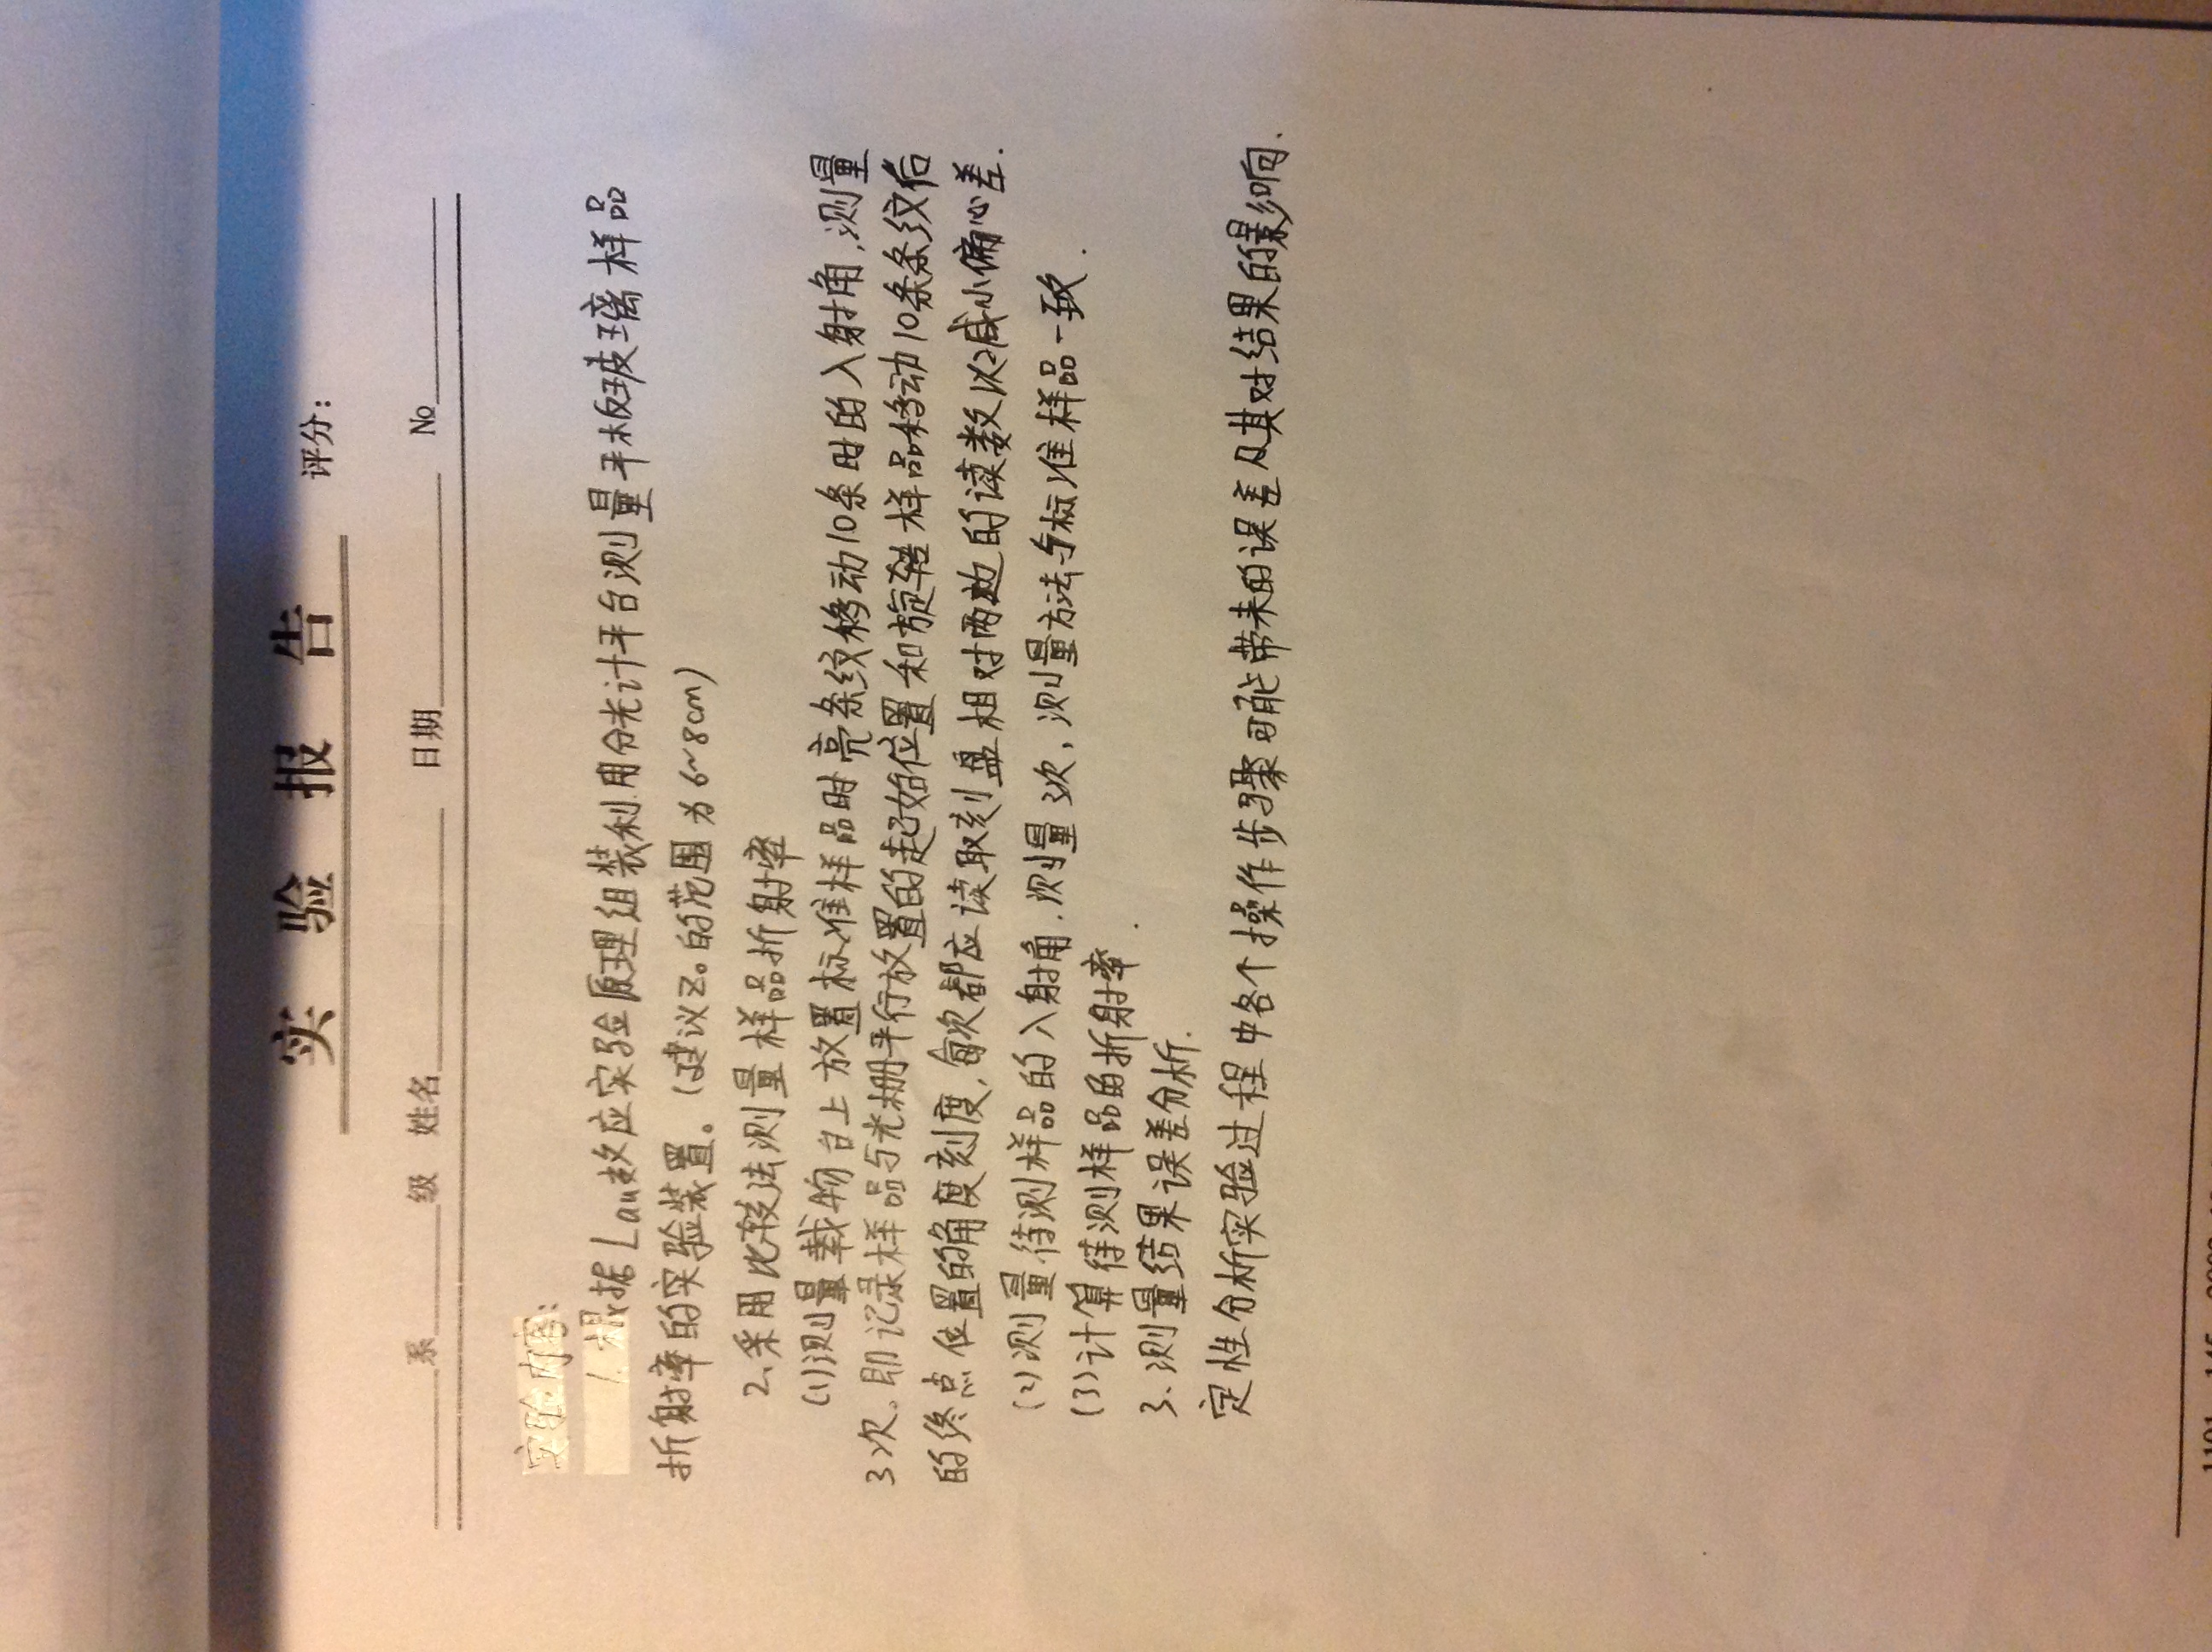 实 验 报 告 评分:
系 级 姓名 日期 No
实验内容:
1. 根据Lau效应实验原理组装利用分光计平台测量平板玻璃样品
折射率的实验装置。(建议Z₀的范围为6~8cm)
2、采用比较法测量样品折射率
(1)测量载物台上放置标准样品时亮条纹移动10条时的入射角,测量
3次。即记录样品与光栅平行放置的起始位置和旋转样品移动10条条纹后
的终点位置的角度刻度,每次都应读取刻盘相对两边的读数以减小偏心差.
(2)测量待测样品的入射角.测量3次,测量方法与标准样品一致.
(3)计算待测样品的折射率.
3、测量结果误差分析.
定性分析实验过程中各个操作步骤可能带来的误差及其对结果的影响.